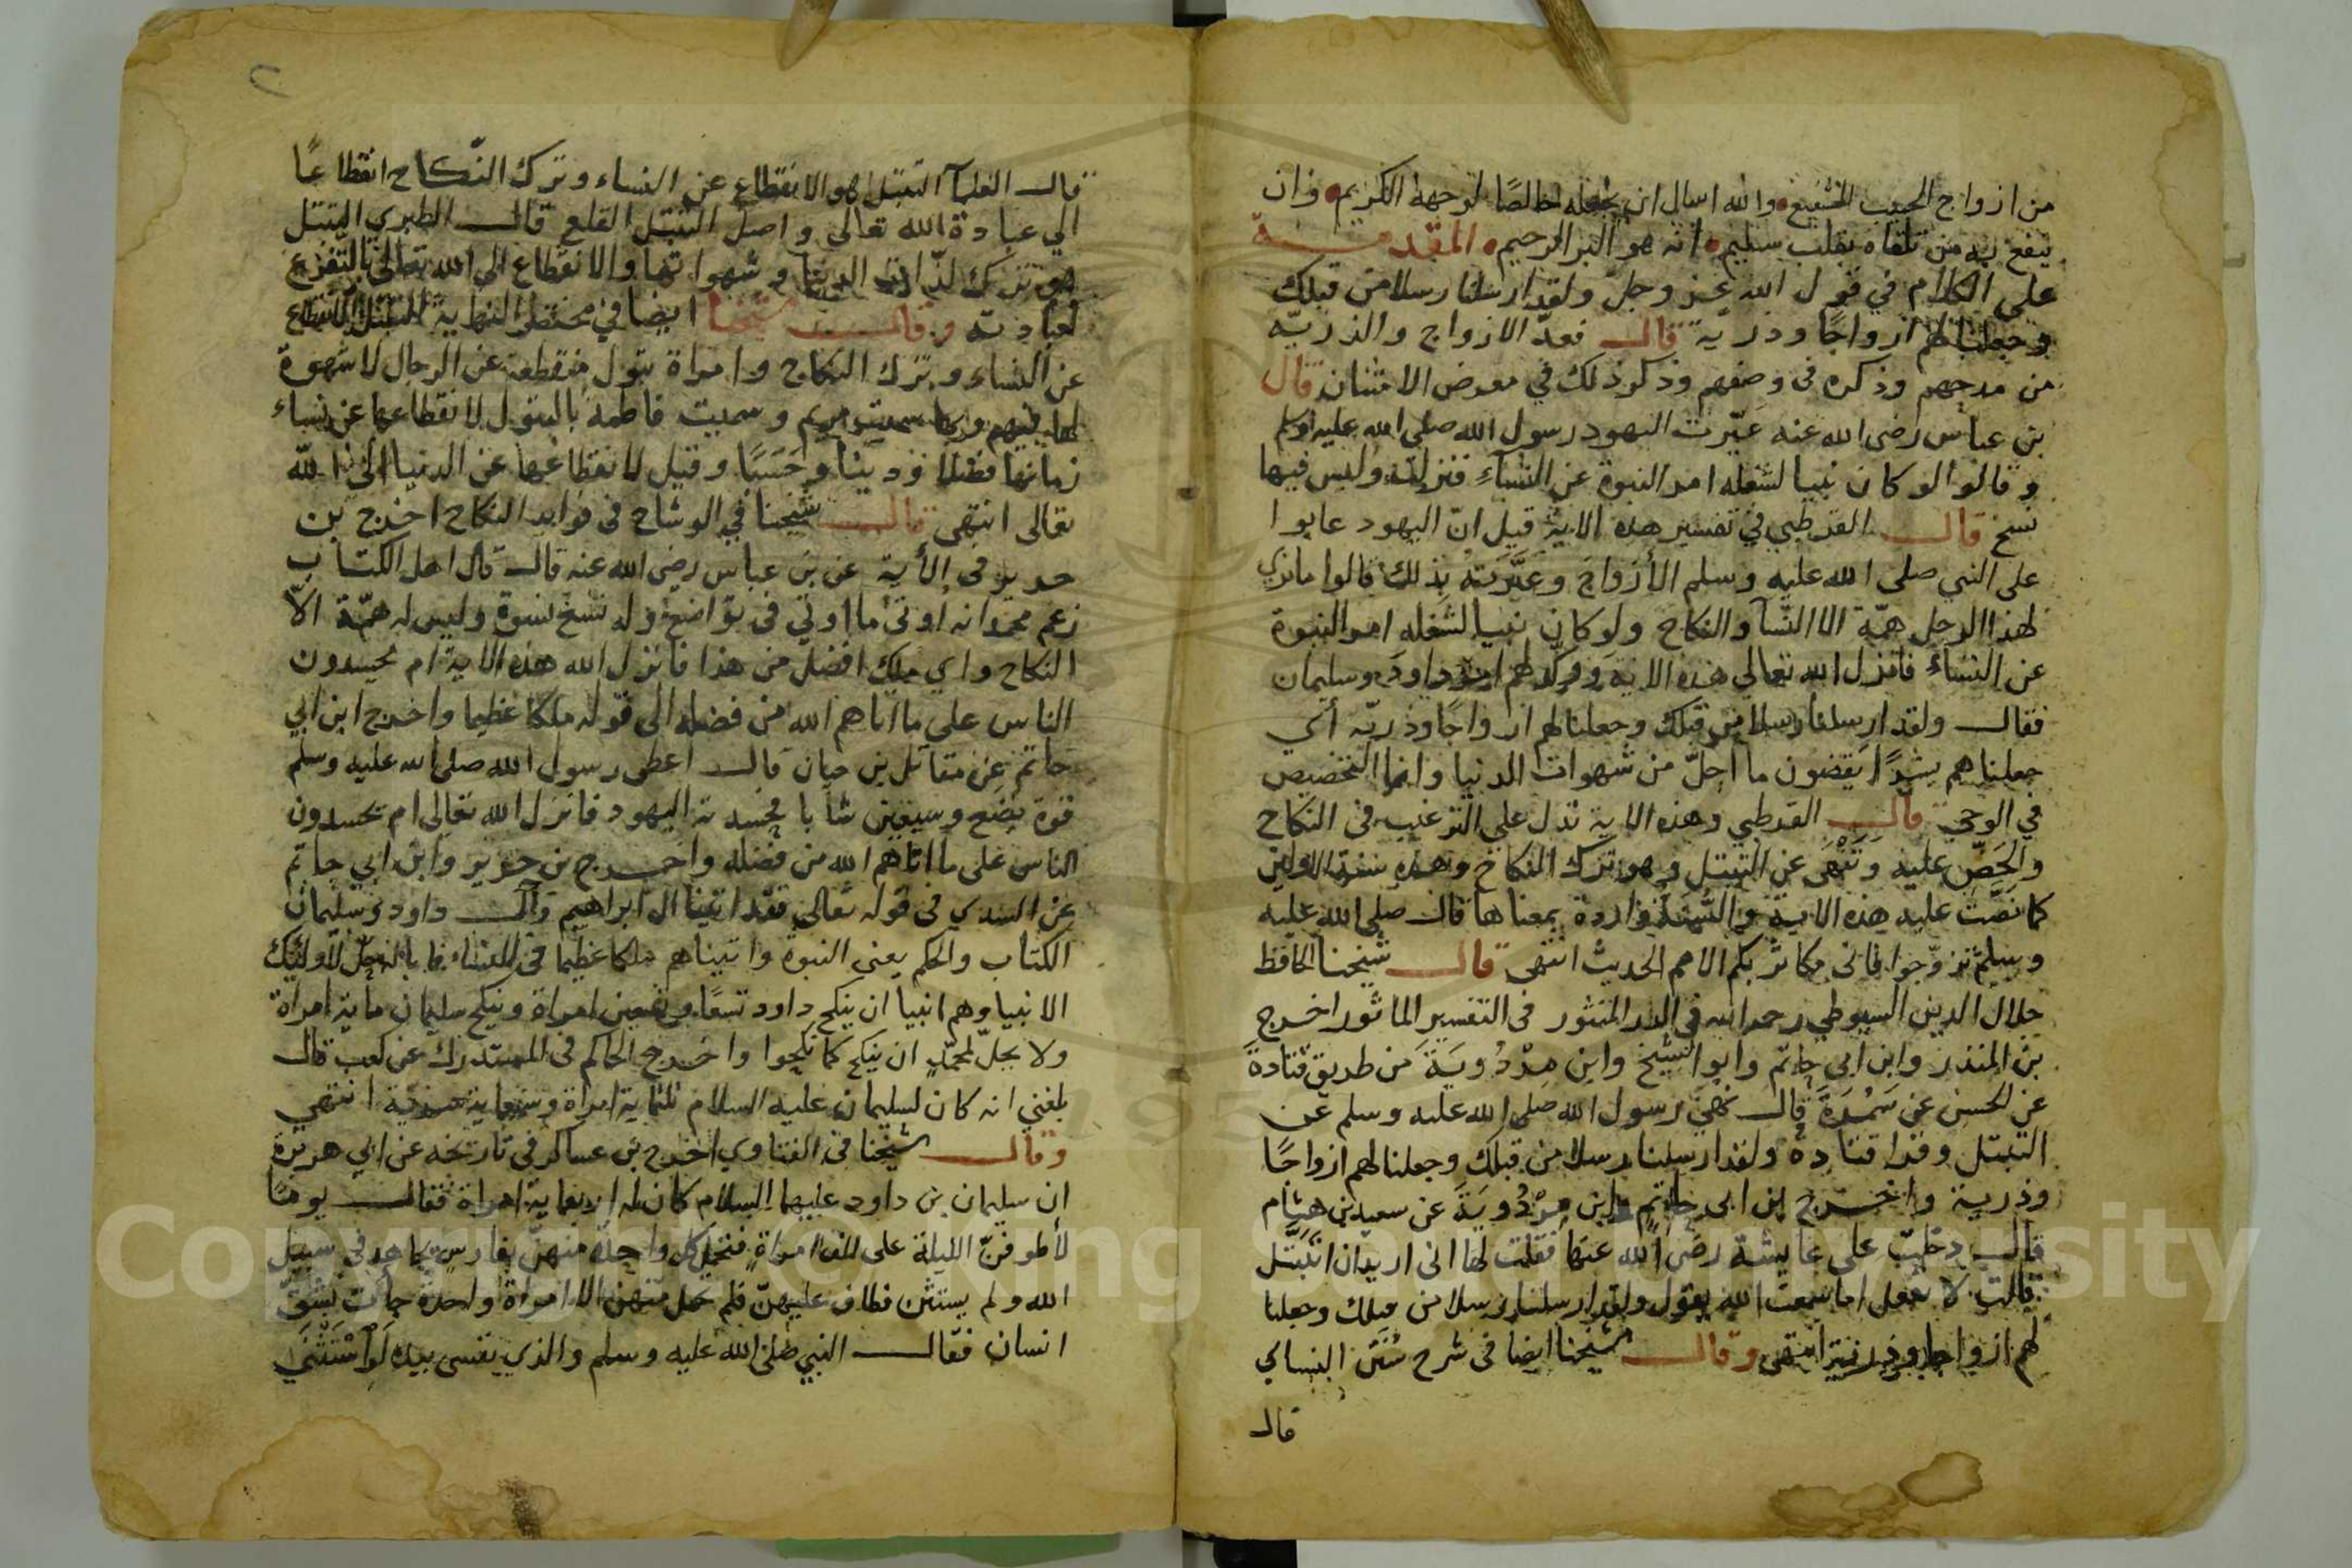 من ازواج الحبيب الشفيع والله اسال ان يجعله خالصًا لوجهه الكريم وان
ينفع به من تلقاه بقلب سليم انه هو البر الرحيم المقدمـــة
على الكلام في قول الله عز وجل ولقد ارسلنا رسلا من قبلك
وجعلنا لهم ازواجًا وذرية قال فعدّ الازواج والذريّه
من مدحهم وذكره فى وصفهم وذكر ذلك في معرض الامتنان قال
بن عباس رضى الله عنه عَيّرت اليهود رسول الله صلى الله عليه وسلم
وقالوا لو كان نبيا لشغله امر النبوة عن النساءِ فنزلت وليس فيها
نسخ قال القرطبي في تفسير هذه الاية قيل انّ اليهود عابوا
على النبي صلى الله عليه وسلم الأزواجَ وعَيَّرَتهُ بذلك قالوا ما نرى
لهذا الرجل همّة الا النّسآ والنكاح ولو كان نبيا لشغله امر النبوة
عن النساءِ فانزل الله تعالى هذه الاية وذكّرهم امر داودَ وسليمان
فقال ولقد ارسلنا رسلا من قبلك وجعلنا لهم ازواجًا وذريّه أي
جعلناهم بشرًا يقضون ما احلّ من شهوات الدنيا وانما التخصيص
في الوحي قال القرطبي وهذه الاية تدل على الترغيب فى النكاح
والحَضّ عليه وَتَنْهَى عن التبتل وهو ترك النكاح وهذه سنة الاولين
كما نَصَّت عليه هذه الاية والسُّنة واردة بمعناها قال صلى الله عليه
وسلم تزوّجوا فانى مكاثر بكم الامم الحديث انتهى قال شيخنا الحافظ
جلال الدين السيوطي رحمه الله في الدر المنثور فى التفسير الماثور اخرج
بن المنذر وابن ابي حاتم وابو الشيخ وابن مِرْدُويَةَ من طريق قتادةَ
عن الحسن عن سَمُرَةَ قال نهى رسول الله صلى الله عليه وسلم عن
التبتل وقرا قتادة ولقد ارسلنا رسلا من قبلك وجعلنا لهم ازواجًا
وذرية واخرج ابن ابى حاتم وابن مِرْدُويَةَ عن سعيد بن هشام
قال دخلت على عايشة رضى الله عنها فقلت لها انى اريد ان اتبتّل
قالت لا تفعل اما سمعت الله يقول ولقد ارسلنا رسلا من قبلك وجعلنا
لهم ازواجا وذرية انتهى وقال شيخنا ايضا فى شرح سُنَن النسائي
قال
قال العلمآ التبتل هو الانقطاع عن النساء وترك النّكاح انقطاعًا
الي عبادة الله تعالى واصل التبتل القلع قال الطبري التبتل
هو ترك لذّات الدنيا وشهواتها والانقطاع الى الله تعالى بالتّفرغ
لعبادته وقال شيخنا ايضا في مختصر النهاية التبتل الانقطاع
عن النساء وترك النكاح وامراة بتول منقطعة عن الرجال لا شهوة
لها فيهم وبها سميت مريم وسميت فاطمة بالبتول لانقطاعها عن نساء
زمانها فضلا ودينا وحَسَبًا وقيل لانقطاعها عن الدنيا الى الله
تعالى انتهى قال شيخنا في الوشاح فى فوايد النكاح اخرج بن
جرير فى الأية عن بن عباس رضى الله عنه قال قال اهل الكتاب
زعم محمد انه اوتى ما اوتي فى تواضع وله تسع نسوة وليس له همّة الاّ
النكاح واي ملك افضل من هذا فانزل الله هذه الاية ام يحسدون
الناس على ما اتاهم الله من فضله الى قوله ملكا عظيما واخرج ابن ابي
حاتم عن مقاتل بن حيان قال اعطى رسول الله صلى الله عليه وسلم
قوة بضع وسبعين شابا فحسدته اليهود فانزل الله تعالى ام يحسدون
الناس على ما اتاهم الله من فضله واخرج بن جرير وابن ابي حاتم
عن السدي فى قوله تعالى فقد اتينا ال ابراهيم قال داود وسليمان
الكتاب والحكم يعني النبوة واتيناهم ملكا عظيما فى النساء فما باله حلّ لاوليك
الانبيا وهم انبيا ان ينكح داود تسعًا وتسعين امراة وينكح سليمان ماية امراة
ولا يحلّ لمحمّد ان ينكح كما نكحوا واخرج الحاكم فى المستدرك عن كعب قال
بلغني انه كان لسليمان عليه السلام ثلثماية امراة وسبعماية سرية انتهي
وقال شيخنا فى الفتاوي اخرج بن عساكر فى تاريخه عن ابي هريرة
ان سليمان بن داود عليهما السلام كان له اربعماية امراة فقال يومًا
لأطوفنّ الليلة على الف امراة فتحمل كل واحدة منهنّ بفارس يجاهد في سبيل
الله ولم يستثن فطاف عليهنّ فلم تحمل منهن الا امراة واحدة جأت بشقّ
انسان فقال النبي صلى الله عليه وسلم والذي نفسى بيده لَو اسْتَثْنَى